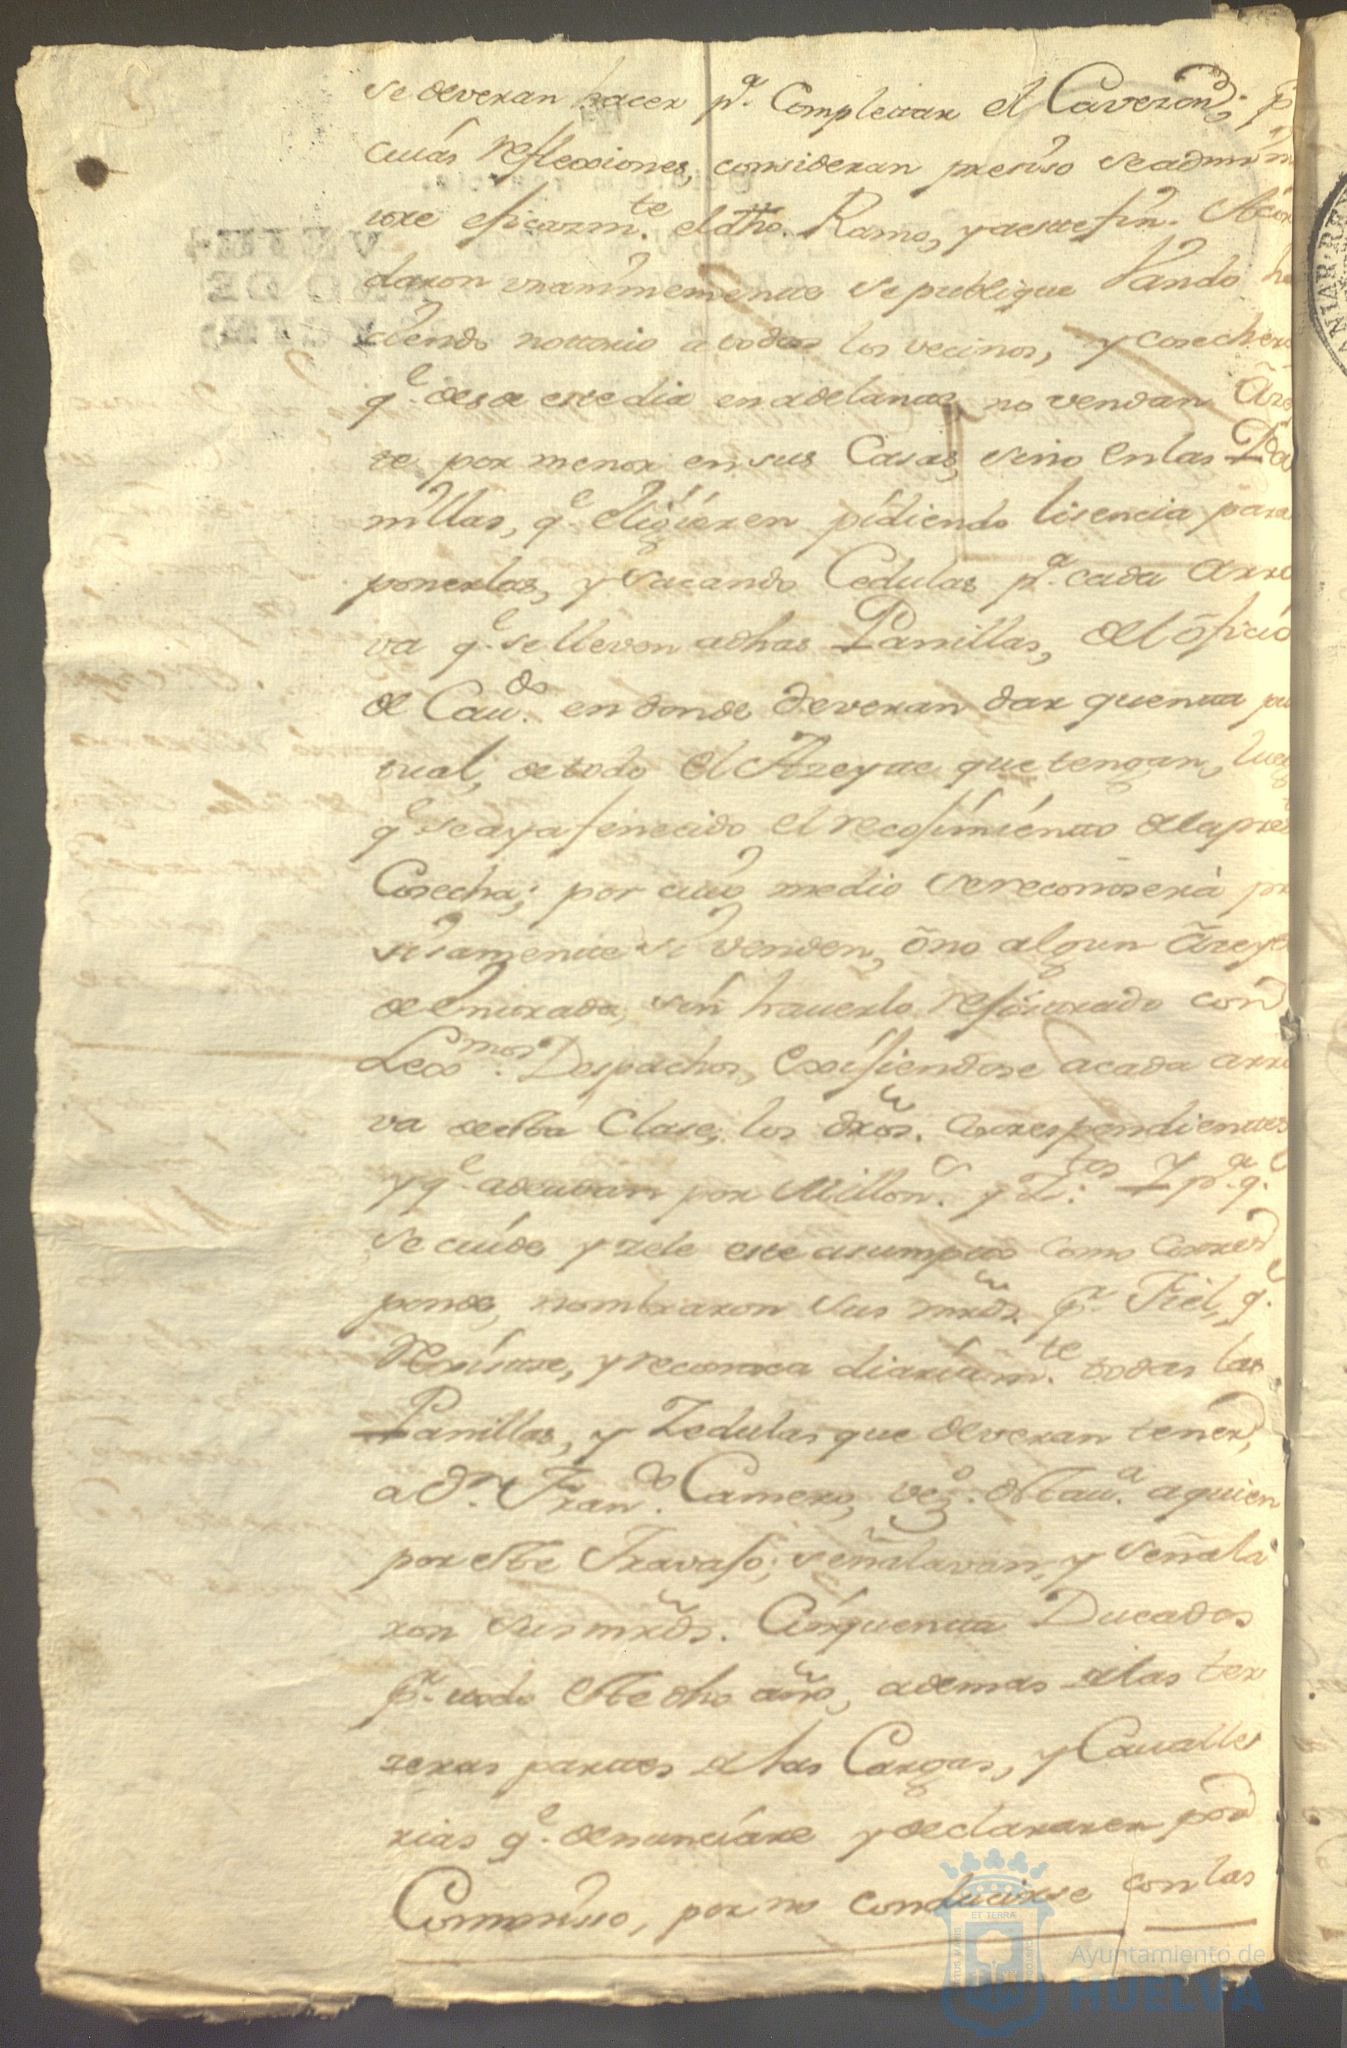 se deveran hacer pᵃ. Completar el Cavezonᵈ; pʳ
cuias reflexiones, consideran presiso se admin
tre eficazmᵗᵉ. el dho. Ramo, y a este fin. Acor
daron unanimemente se publique Vando ha
ciendo notorio a todos los vecinos, y cosechero
qᵉ. desde este dia en adelante, no vendan Azey
te por menor en sus Casas, sino en las Pa
nillas, qᵉ. eligieren pidiendo lisencia para
ponerlas, y sacando Cedulas pᵃ. cada arro
va qᵉ. se lleven a dhas Panillas, del ofisio
de Cauᵈᵒ. en donde deveran dar quenta pu
tual, de todo el Azeyte que tengan, lueg
qᵉ se aya fenecido el recojimiento de la pres
Cosecha; por cuio medio se reconoserá pr
sisamente si venden, o no algun Azeyte
de entrada, sin hauerlo rejistrado con
Lexᵐᵒˢ. Despachos, exijiendose a cada arro
va de esta Clase, los dros. Correspondientes
y qᵉ. adeudan por Millonˢ. y Zᵗᵒˢ. Y pᵃ. qᵉ.
se cuide y zele este asumpto como corres
ponde, nombraron sus mrds. pʳ. Fiel, qᵉ.
Rexistre, y reconosca diariamᵗᵉ. todas las
Panillas, y Zedulas que deveran tener,
a Dⁿ. Franᶜᵒ. Camero, vezᵒ. de esta uᵃ. a quien
por este Travajo; señalavan, y señala
ron sus mrds. Cinquenta Ducados
pʳ. todo este dho año, ademas de las ter
zeras partes de las Cargas, y Cavalle
rias qᵉ. denunciare y declararen por
Commisso, por no conducirse con las
VEIN-
AÑO DE
Ayuntamiento de
HUELVA
ET TERRÆ